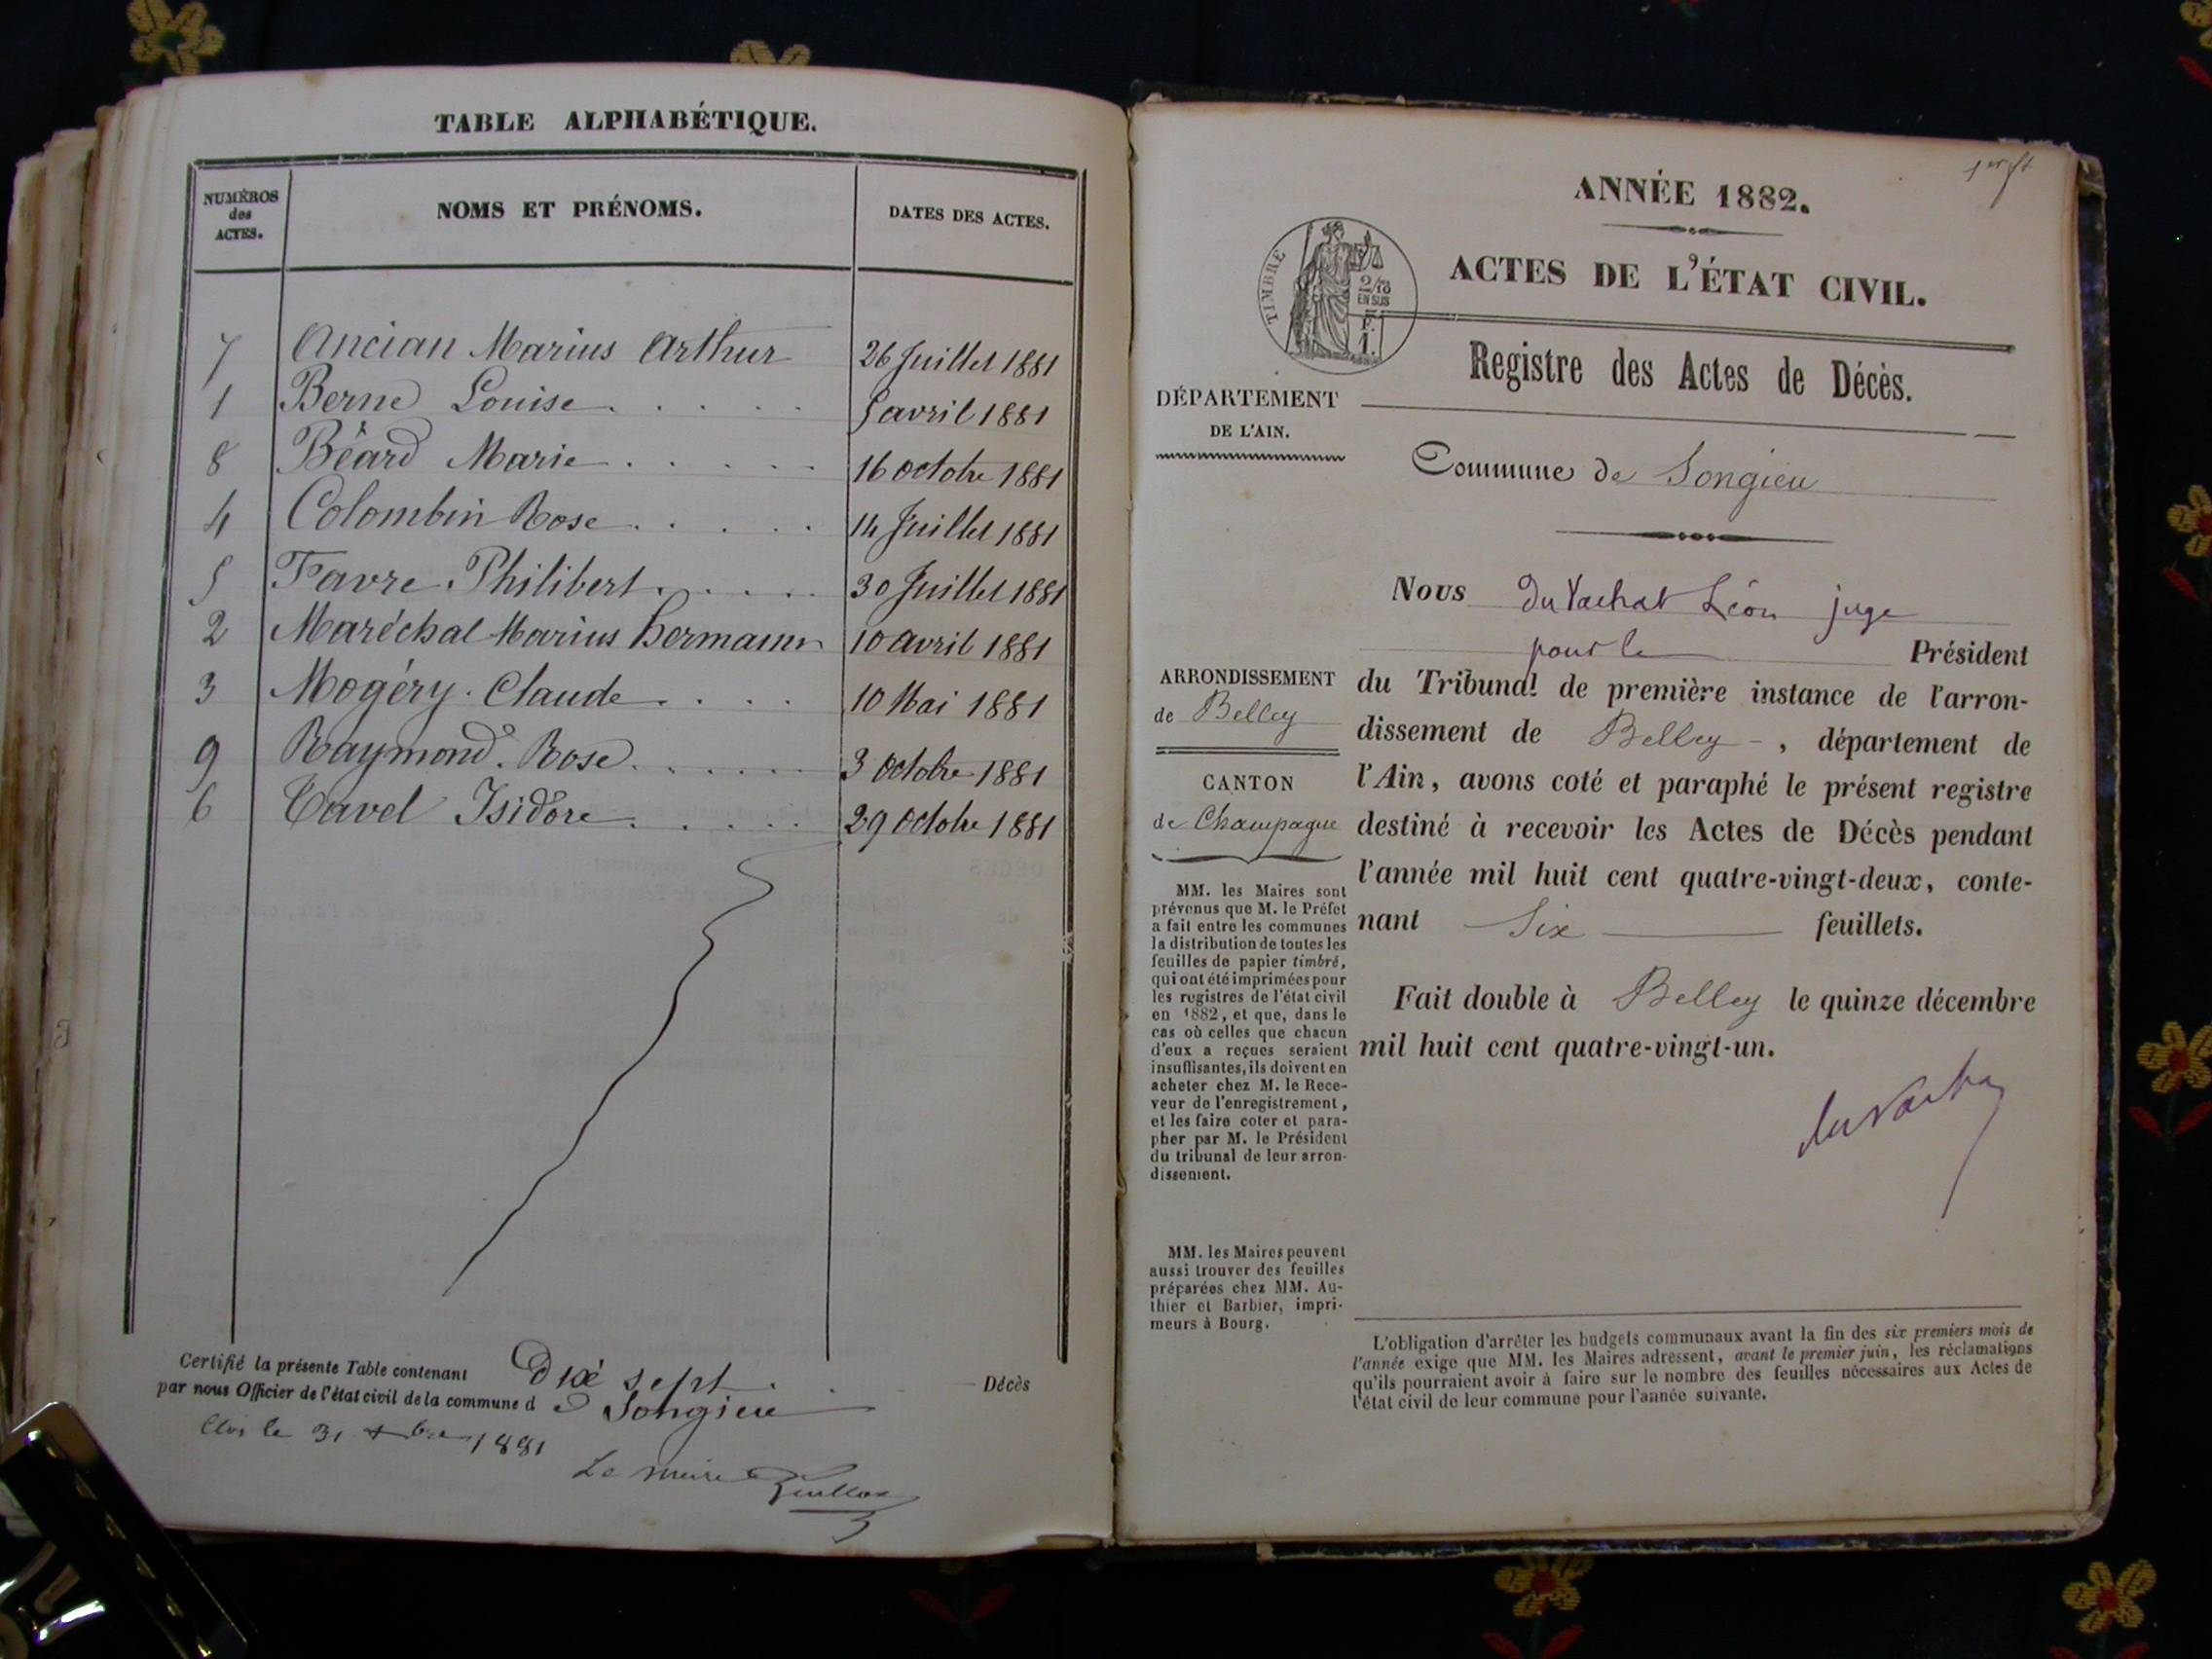 TABLE ALPHABÉTIQUE.
NUMÉROS des ACTES.
NOMS ET PRÉNOMS.
DATES DES ACTES.
7 Ancian Marius Arthur 26 Juillet 1881
1 Berne Louise . . . . . 5 avril 1881
8 Béard Marie . . . . . 16 octobre 1881
4 Colombin Rose . . . . . 14 Juillet 1881
5 Favre Philibert . . . . . 30 Juillet 1881
2 Maréchal Marius hermann 10 avril 1881
3 Mogéry Claude . . . . 10 Mai 1881
9 Raymond Rose . . . . . . 3 octobre 1881
6 Tavel Isidore . . . . . 29 Octobre 1881
Certifié la présente Table contenant Dix sept Décès
par nous Officier de l'état civil de la commune de Songieu
Clos le 31 Xbre 1881
Le maire
1er ft
ANNÉE 1882.
ACTES DE L'ÉTAT CIVIL.
TIMBRE
2/10
EN SUS
F.
1.
Registre des Actes de Décès.
DÉPARTEMENT
DE L'AIN.
Commune de Songieu
Nous du Vachat Léon juge
pour le Président
du Tribunal de première instance de l'arron-
dissement de Belley , département de
l'Ain, avons coté et paraphé le présent registre
destiné à recevoir les Actes de Décès pendant
l'année mil huit cent quatre-vingt-deux, conte-
nant Six feuillets.
Fait double à Belley le quinze décembre
mil huit cent quatre-vingt-un.
du Vachat
ARRONDISSEMENT
de Belley
CANTON
de Champagne
MM. les Maires sont
prévenus que M. le Préfet
a fait entre les communes
la distribution de toutes les
feuilles de papier timbré,
qui ont été imprimées pour
les registres de l'état civil
en 1882, et que, dans le
cas où celles que chacun
d'eux a reçues seraient
insuffisantes, ils doivent en
acheter chez M. le Rece-
veur de l'enregistrement,
et les faire coter et para-
pher par M. le Président
du tribunal de leur arron-
dissement.
MM. les Maires peuvent
aussi trouver des feuilles
préparées chez MM. Au-
thier et Barbier, impri-
meurs à Bourg.
L'obligation d'arrêter les budgets communaux avant la fin des six premiers mois de
l'année exige que MM. les Maires adressent, avant le premier juin, les réclamations
qu'ils pourraient avoir à faire sur le nombre des feuilles nécessaires aux Actes de
l'état civil de leur commune pour l'année suivante.